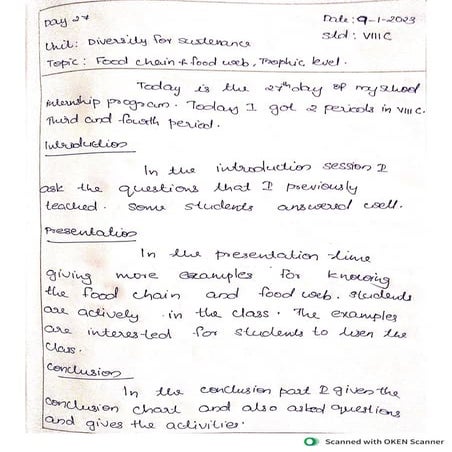 Day 27
Date: 9-1-2023
Unit: Diversity for sustenance
Std: VIII C
Topic: Food chain & food web, Trophic level.
Today is the 27th day of my school
internship program. Today I got 2 periods in VIII C.
Third and fourth period.
Introduction
In the introduction session I
ask the questions that I previously
teached. Some students answered well.
Presentation
In the presentation time
giving more examples for knowing
the food chain and food web. students
are actively in the class. The examples
are interested for students to lisen the
class.
Conclusion
In the conclusion part I gives the
conclusion chart and also asked questions
and gives the activities.
Scanned with OKEN Scanner